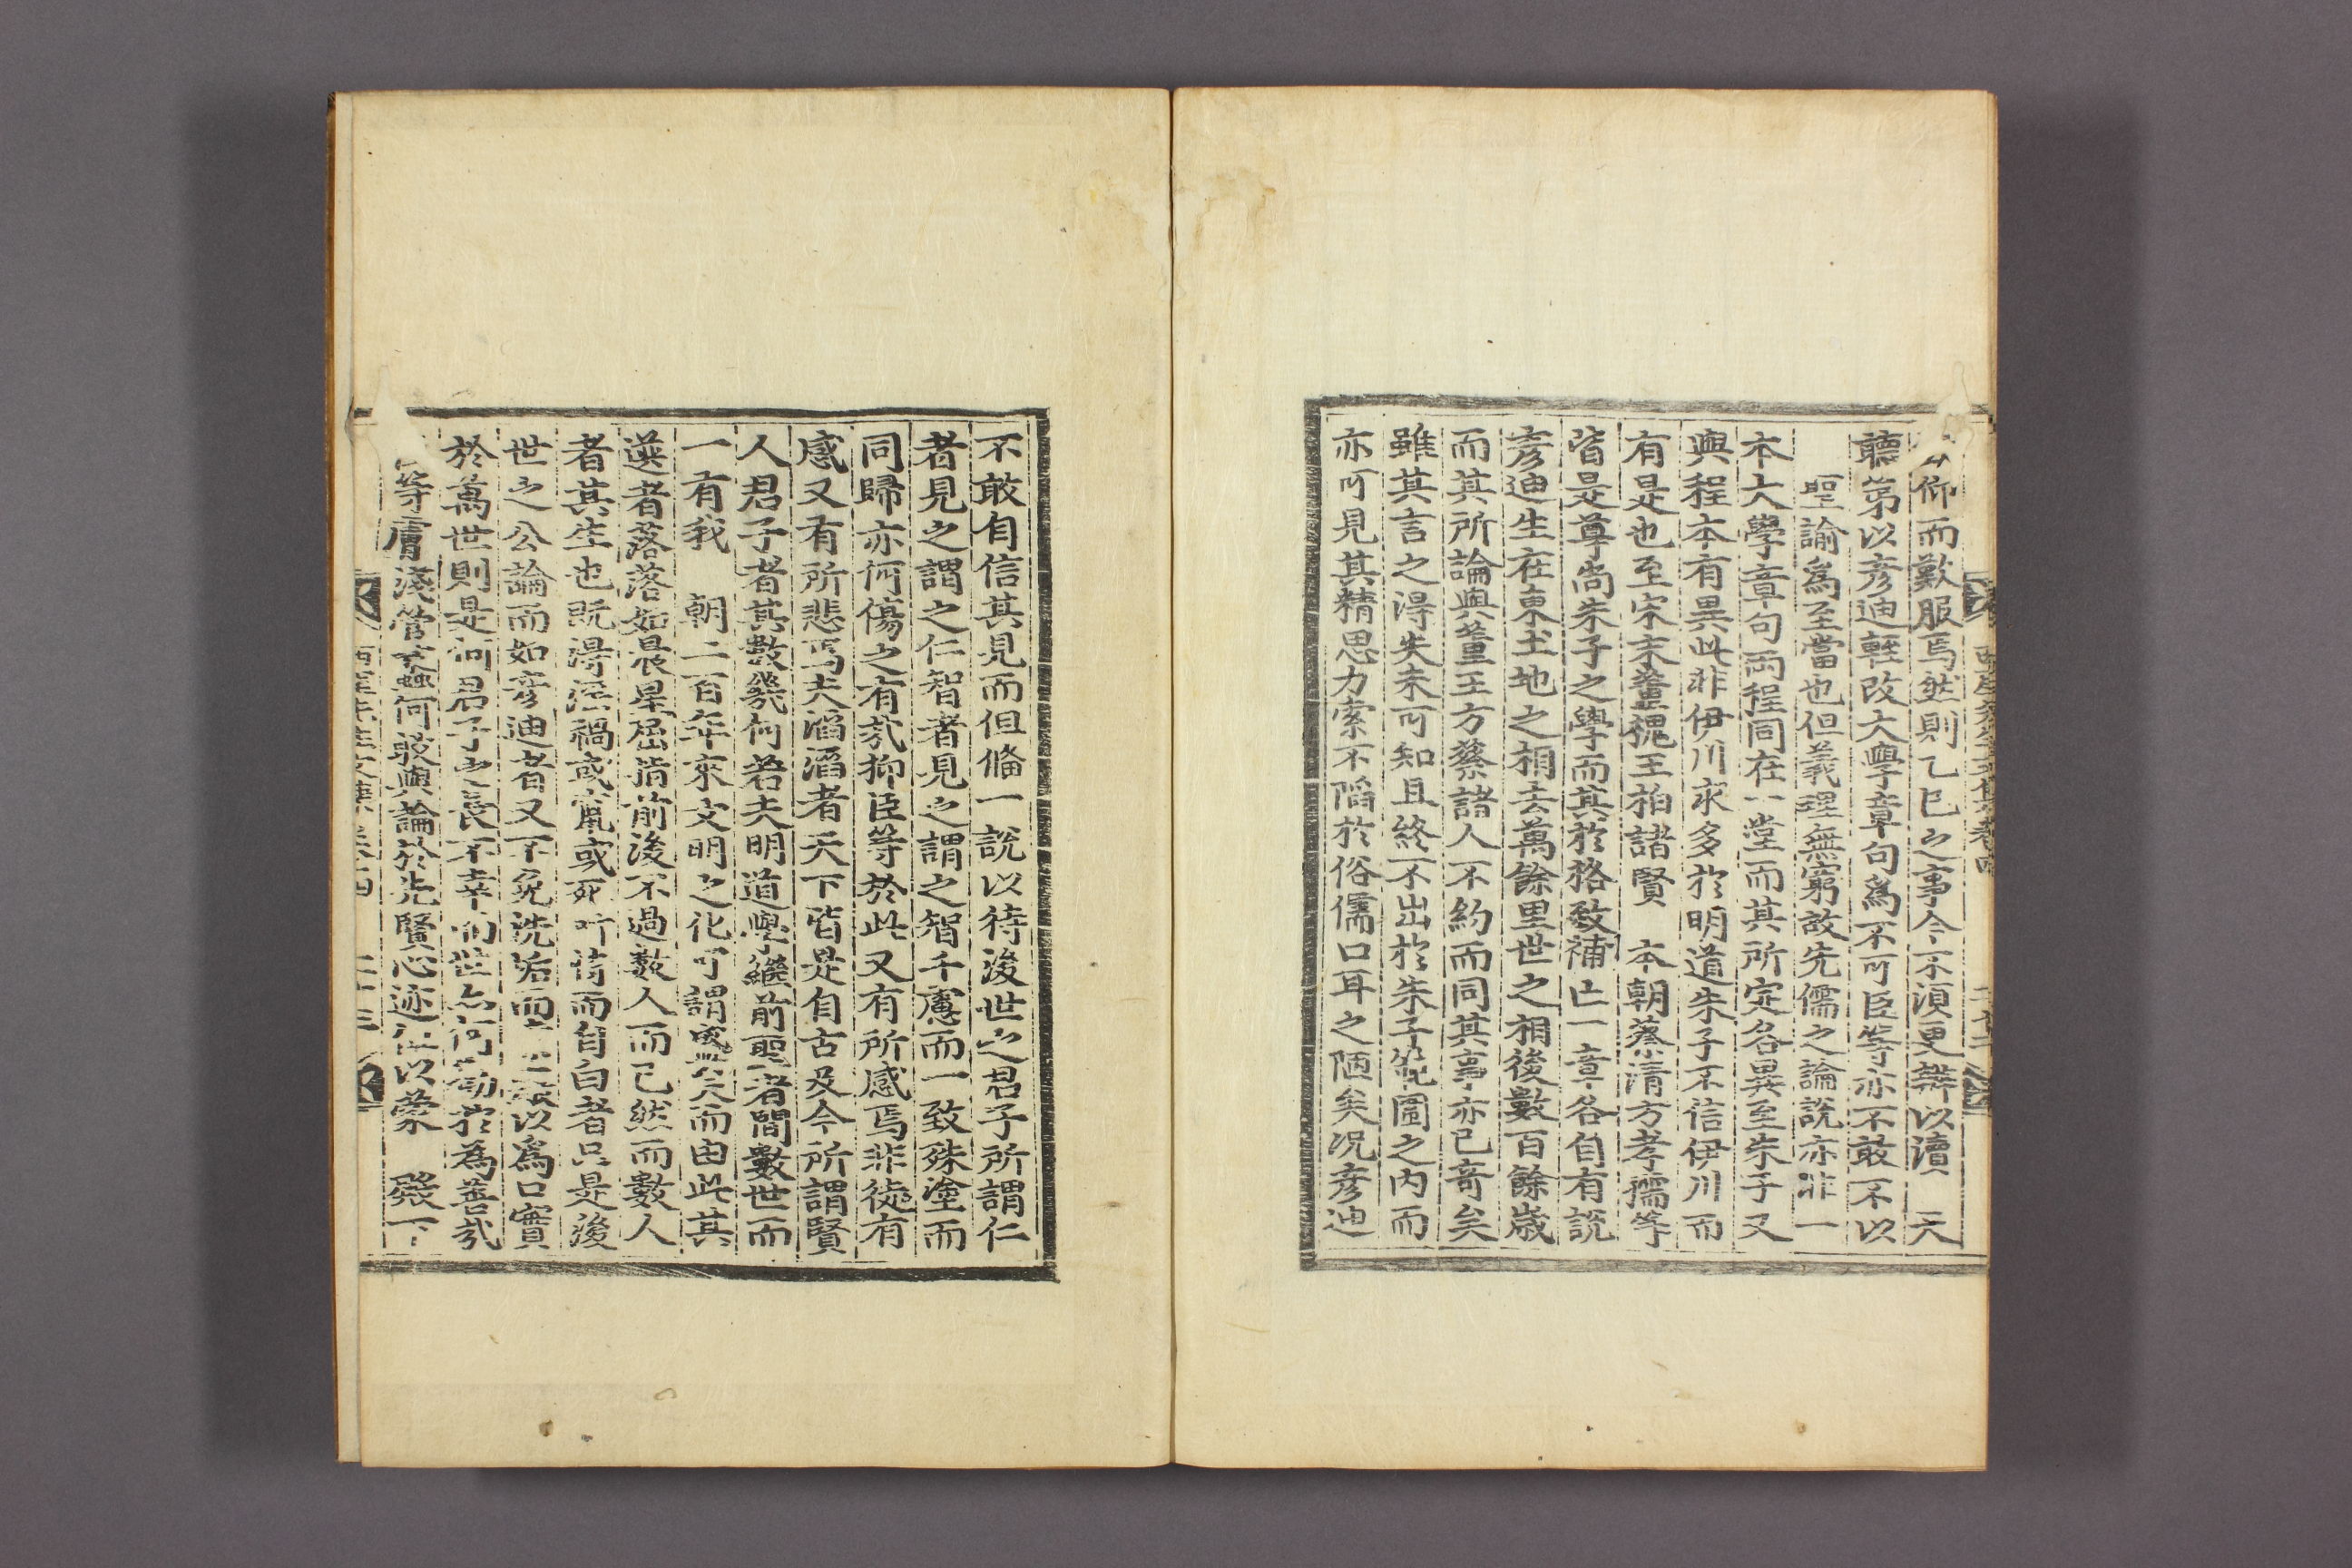 仰而歎服焉然則乙巳之事今不須更辨以瀆 天
聽第以彦迪輕改大學章句爲不可臣等亦不敢不以
聖諭爲至當也但義理無窮故先儒之論說亦非一
本大學章句兩程同在一堂而其所定各異至朱子又
與程本有異此非伊川求多於明道朱子不信伊川而
有是也至宋末董槐王柏諸賢 本朝蔡淸方孝孺等
皆是尊尙朱子之學而其於格致補亡一章各自有說
彦迪生在東土地之相去萬餘里世之相後數百餘歲
而其所論與董王方蔡諸人不約而同其事亦已奇矣
雖其言之得失未可知且終不出於朱子範圍之內而
亦可見其精思力索不陷於俗儒口耳之陋矣况彦迪
不敢自信其見而但俻一說以待後世之君子所謂仁
者見之謂之仁智者見之謂之智千慮而一致殊塗而
同歸亦何傷之有㢤抑臣等於此又有所感焉非徒有
感又有所悲焉夫滔滔者天下皆是自古及今所謂賢
人君子者其數幾何若夫明道學繼前聖者間數世而
一有我 朝二百年來文明之化可謂盛矣而由此其
選者落落如晨星屈指前後不過數人而已然而數人
者其生也旣得淫禍或竄或死所恃而自白者只是後
世之公論而如彦迪者又不免洗垢而以爲口實
於萬世則是何君子之長不幸而世亦何勸於爲善㢤
等膚淺管蠡何敢與論於先賢心迹以蒙 發下